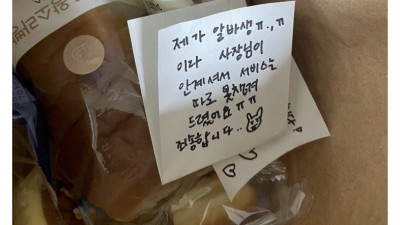 제가 알바생ㅠ.,ㅠ
이라 사장님이
안계셔서 서비스는
따로 못챙겨
드렸어요ㅠㅠ
죄송합니다..